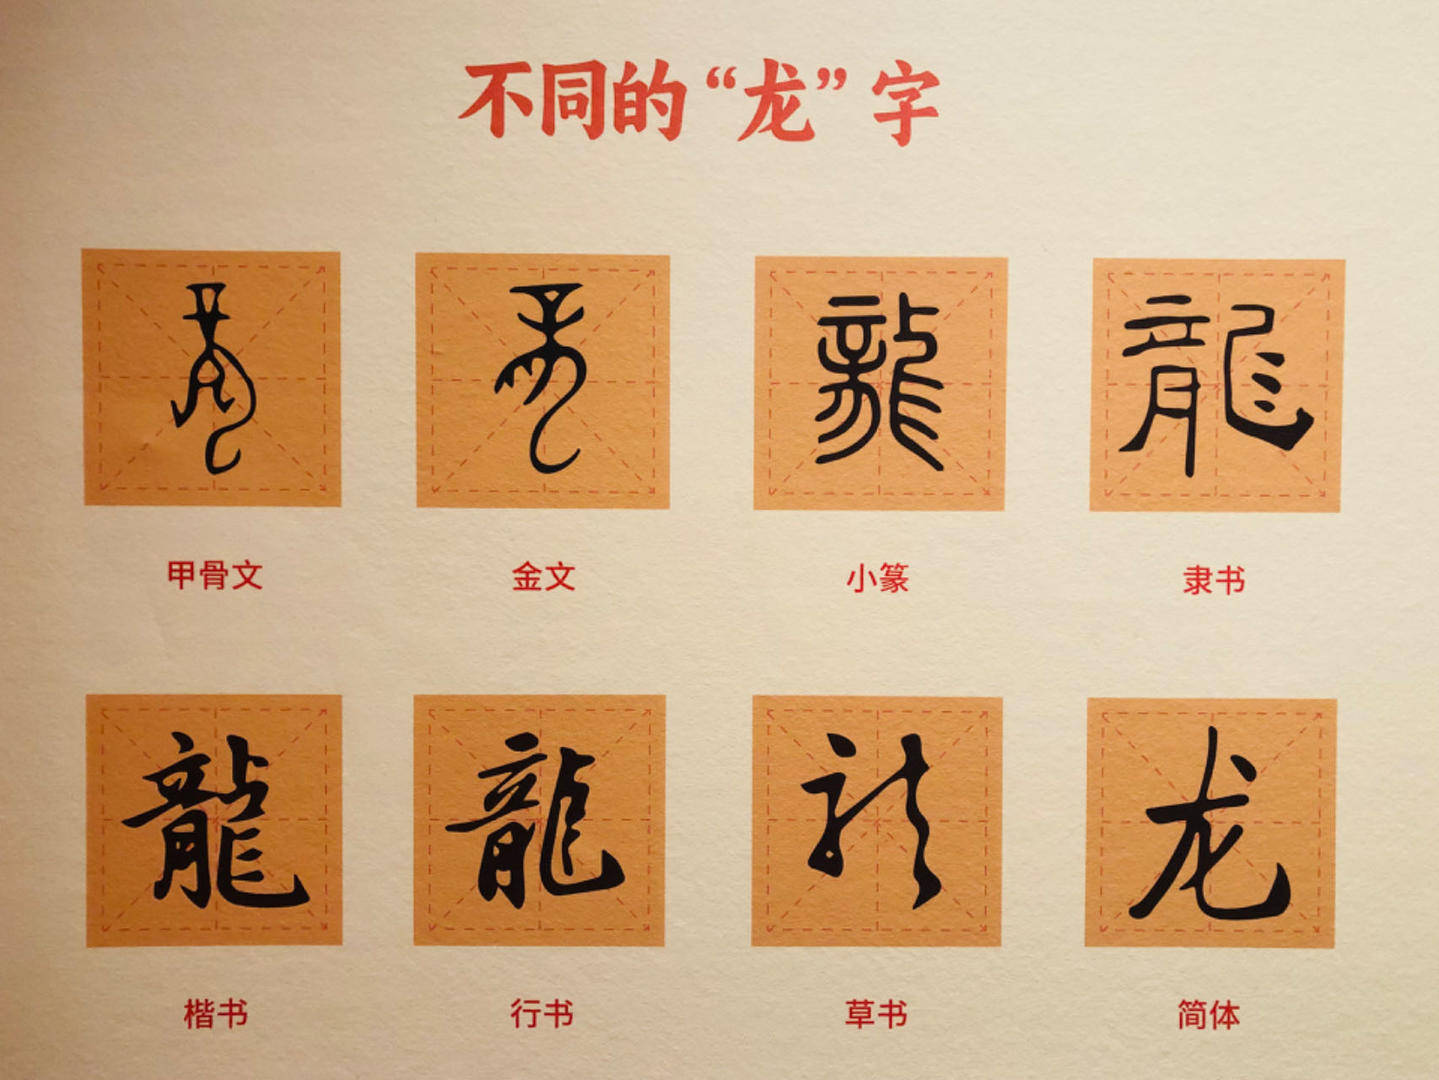 不同的“龙”字
龍 龍 龍 龍
甲骨文 金文 小篆 隶书
龍 龍 龙 龙
楷书 行书 草书 简体